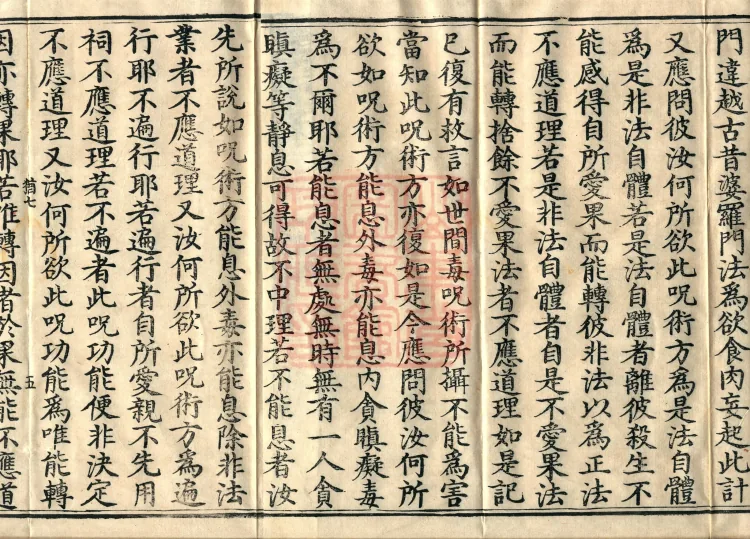 門違越古昔婆羅門法為欲食肉妄起此計
又應問彼汝何所欲此呪術方為是法自體
為是非法自體若是法自體者離彼殺生不
能感得自所愛果而能轉彼非法以為正法
不應道理若是非法自體者自是不愛果法
而能轉捨餘不愛果法者不應道理如是記
已復有救言如世間毒呪術所攝不能為害
當知此呪術方亦復如是今應問彼汝何所
欲如呪術方能息外毒亦能息內貪瞋癡毒
為不爾耶若能息者無處無時無有一人貪
瞋癡等靜息可得故不中理若不能息者汝
先所說如呪術方能息外毒亦能息除非法
業者不應道理又汝何所欲此呪術方為遍
行耶不遍行耶若遍行者自所愛親不先用
祠不應道理若不遍者此呪功能便非決定
不應道理又汝何所欲此呪功能為唯能轉
五
因亦轉果耶若唯轉因者於果無能不應道